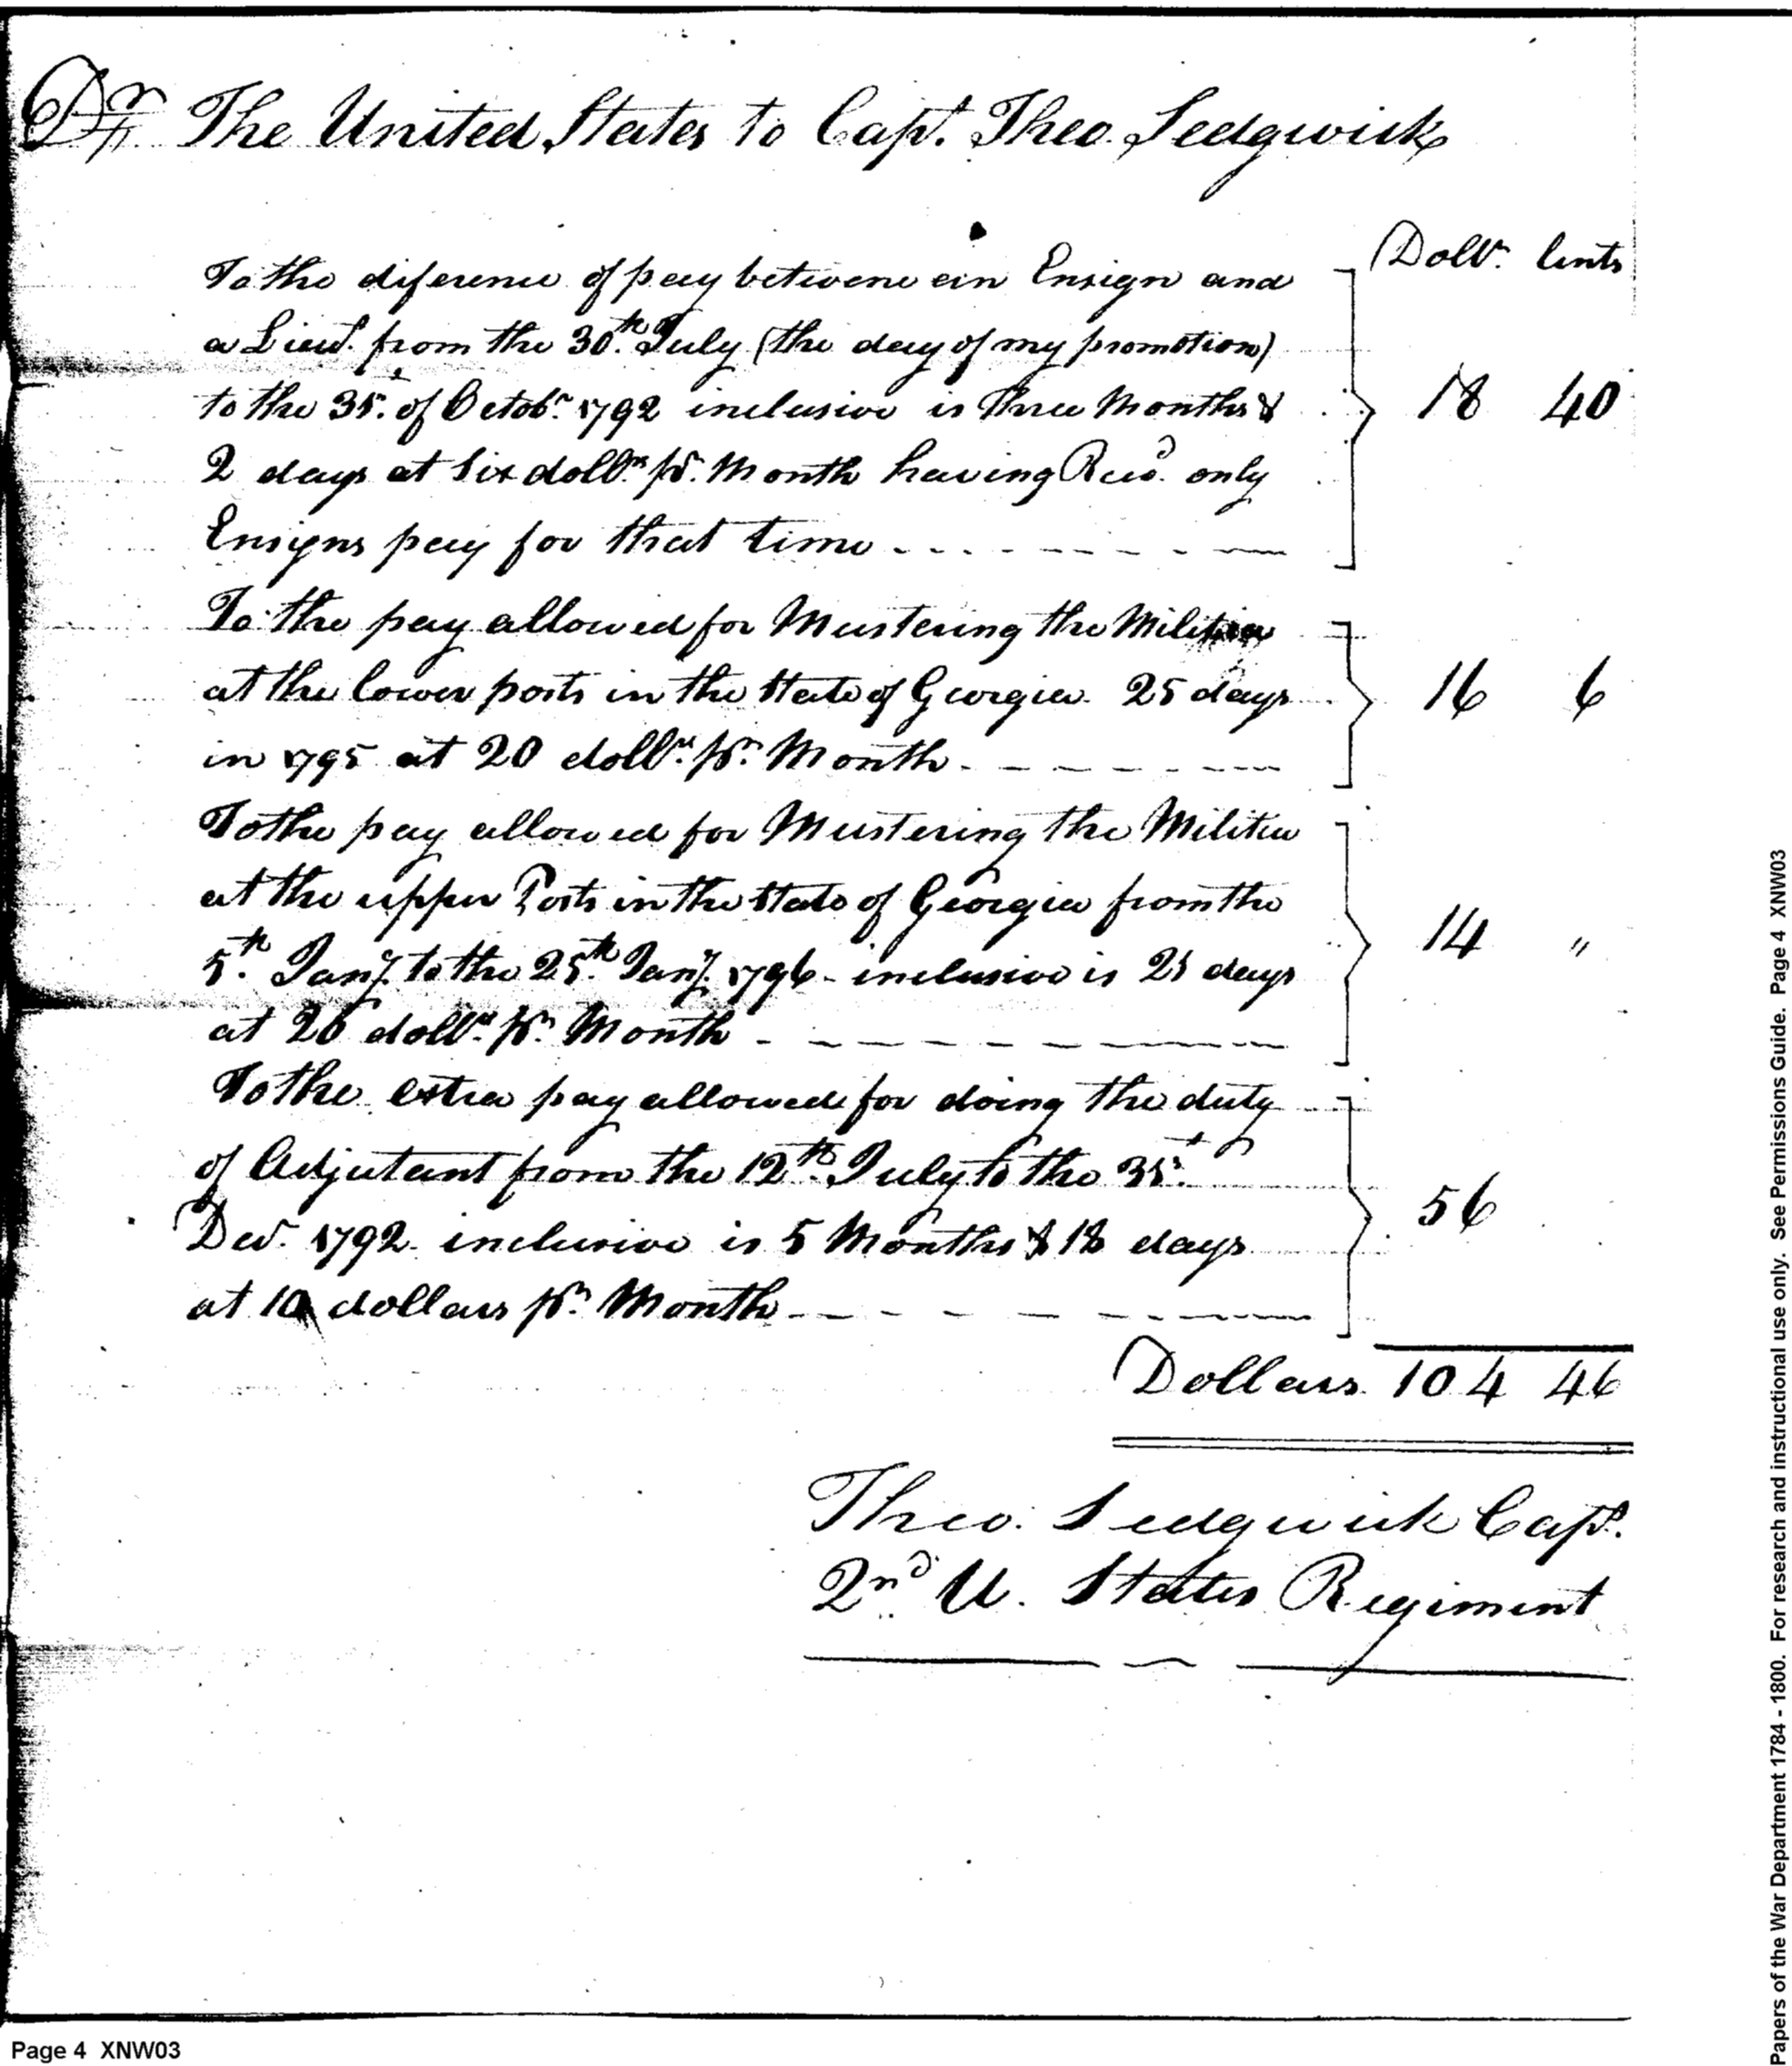 Dr. The United States to Capt. Theo. Sedgwick
Dollrs. Cents
To the diference of pay betwene an Ensign and
a Lieut. from the 30th. July (the day of my promotion)
to the 31st. of Octobr. 1792 inclusive is three Months &
2 days at six dollrs. pr. Month having Recd. only
Ensigns pay for that time
18 40
To the pay allowed for Mustering the Militia
at the lower posts in the State of Georgia. 25 days
in 1795 at 20 dollrs. pr. Month
16 6
To the pay allowed for Mustering the Militia
at the upper Posts in the State of Georgia from the
5th. Jany. to the 25th. Jany. 1796 - inclusive is 21 days
at 20 dollrs. pr. Month
14 "
To the extra pay allowed for doing the duty
of Adjutant from the 12th. July to the 31st.
Decr. 1792 inclusive is 5 Months & 18 days
at 10 dollars pr. Month
56
Dollars 104 46
Theo. Sedgwick Capt.
2nd U. States Regiment
Page 4 XNW03
Papers of the War Department 1784 - 1800. For research and instructional use only. See Permissions Guide. Page 4 XNW03